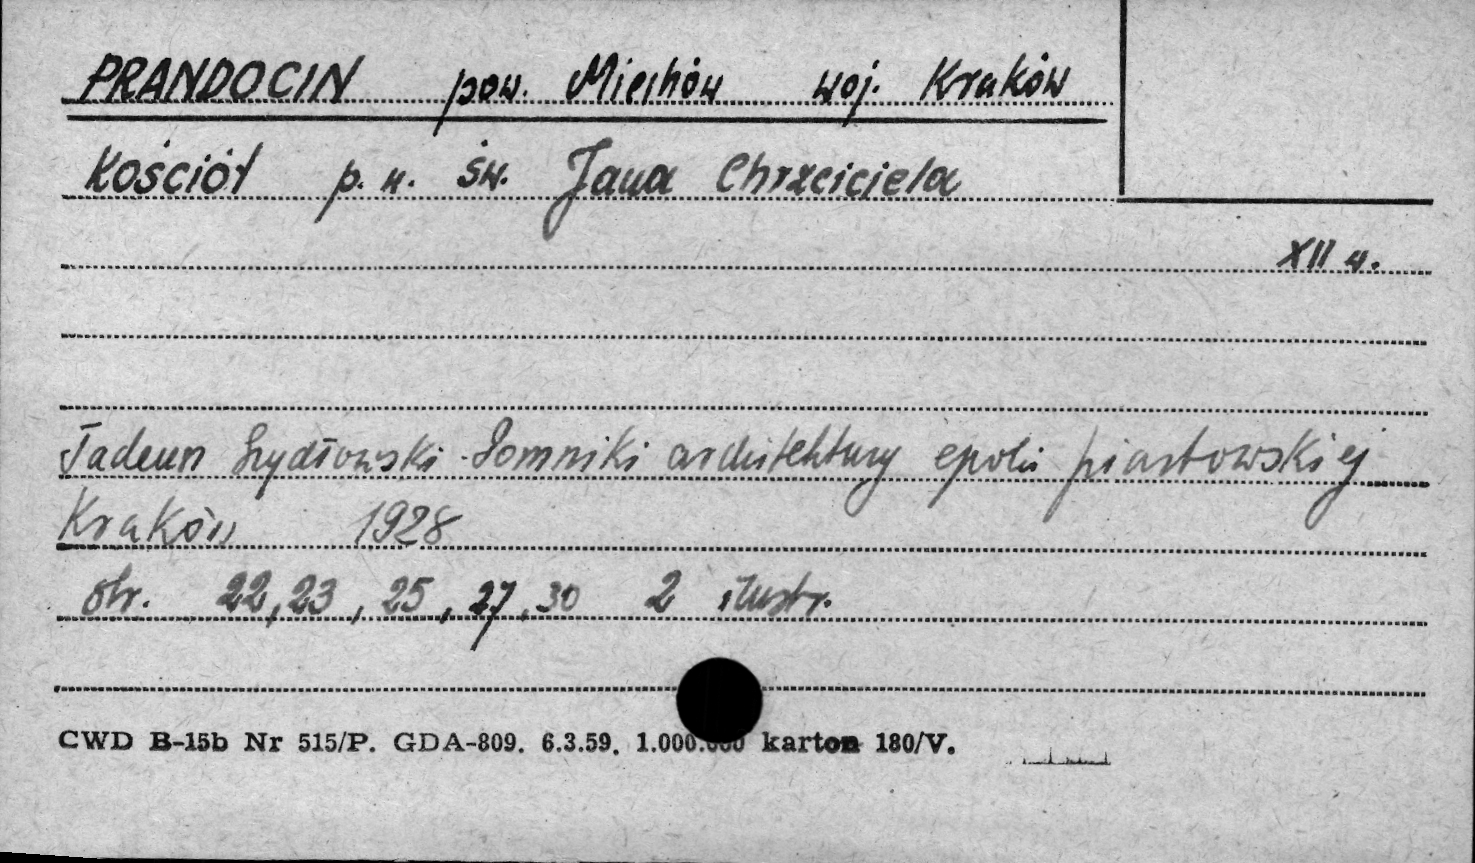 PRANDOCIN pow. Miechów woj. Kraków
Kościół p.w. św. Jana Chrzciciela
XII w.
Tadeusz Szydłowski Pomniki architektury epoki piastowskiej
Kraków 1928
str. 22, 23, 25, 27, 30 2 ilustr.
CWD B-15b Nr 515/P. GDA-809. 6.3.59. 1.000.000 karton 180/V.